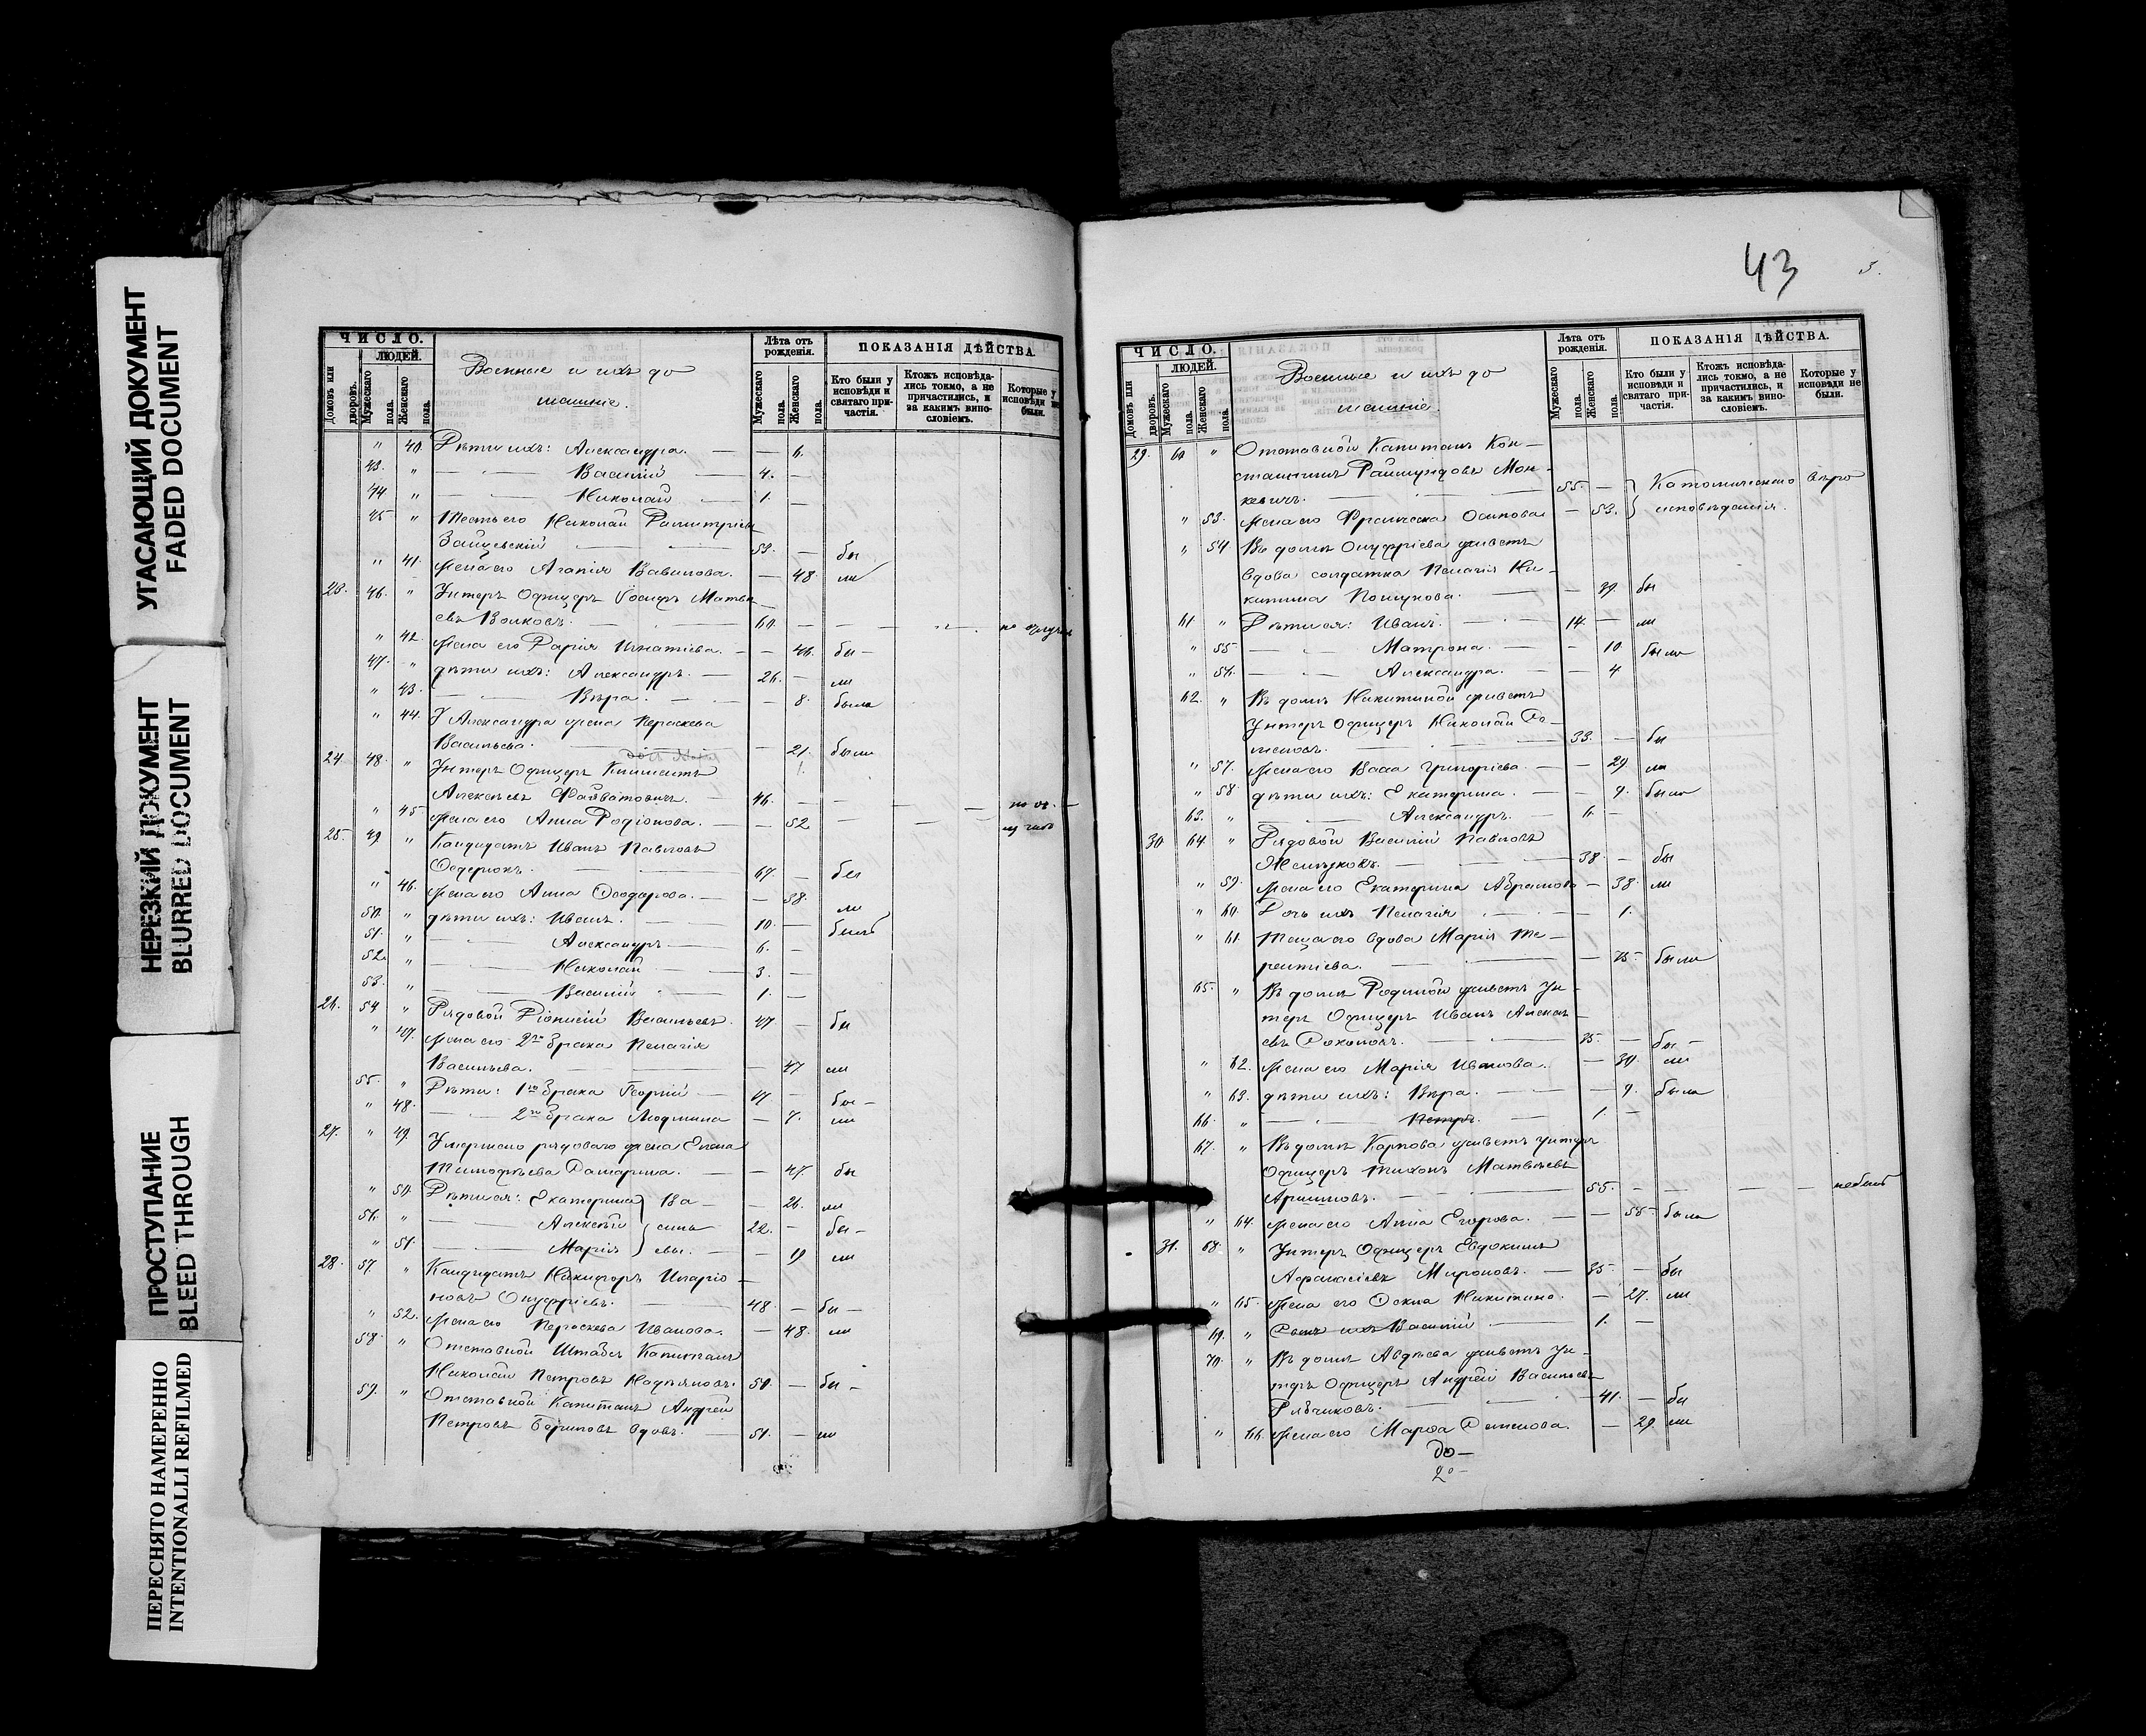 УГАСАЮЩИЙ ДОКУМЕНТ
FADED DOCUMENT
НЕРЕЗКИЙ ДОКУМЕНТ
BLURRED DOCUMENT
ПРОСТУПАНИЕ
BLEED THROUGH
ПЕРЕСНЯТО НАМЕРЕННО
INTENTIONALLI REFILMED
ЧИСЛО.
ЛЮДЕЙ.
Домовъ или дворовъ.
Мужескаго пола.
Женскаго пола.
Военные и ихъ до
машніе.
Лѣта отъ рожденія.
Мужескаго пола.
Женскаго пола.
ПОКАЗАНІЯ ДѢЙСТВА.
Кто были у исповѣди и святаго причастія.
Ктожъ исповѣдались токмо, а не причастились, и за какимъ винословіемъ.
Которые у исповѣди не были.
" 40. Дѣти ихъ: Александра. — — 6.
43. " — Василій — 4. —
44 " — Николай — 1. —
45 " Тесть его Николай
53. — бы
" 41. Жена его Агапія Вавилова. — 48. ли
23. 46. " Унтеръ Офицеръ Іосифъ Матвѣ
евъ Волковъ. 60. — —
" 42. Жена его Дарія Игнатіева. — — 46. бы —
47. " дѣти ихъ: Александръ. — 26. — ли
" 43. — Вѣра. — — 8. была
" 44. У Александра жена Параскева
Васильева. — 21. были
24 48. " Унтеръ Офицеръ Климентъ
Алексѣевъ 46. — —
" 45 Жена его Анна Родіонова. — — 52
25. 49 " Кандидатъ Иванъ Павловъ
67. — бы
" 46. Жена его Анна Ѳеодорова. — — 38. ли
50. " дѣти ихъ: Иванъ. — 10. — былъ
51. " — Александръ — 6. —
52. " — Николай — 3. —
53. " — Василій — 1. —
26. 54 " Рядовой Діонисій Васильевъ. 47. — бы
" 47. Жена его 2го брака Пелагія
Васильева. — 47 ли
55. " Дѣти: 1го брака Георгій — 17. — бы —
" 48. — 2го брака Людмила — 7. ли
27. " 49. Умершаго рядоваго жена Елена
Тимоѳеева — — 47. бы
" 50. Дѣти ея: Екатерина } Ва — — 26. ли
56. " — Алексѣй } силь 22. — бы —
" 51. — Марія } евы. — — 19 ли
28. 57. " Кандидатъ Никифоръ Иларіо —
новъ Онуфріевъ. 48. — бы —
" 52. Жена его Параскева Иванова. — 48. ли
58. " Отставной Штабсъ Капитанъ
Николай Петровъ 50. — бы —
59. " Отставной Капитанъ Андрей
Петровъ вдовъ. — 51. — ли
43
3.
ЧИСЛО.
ЛЮДЕЙ.
Домовъ или дворовъ.
Мужескаго пола.
Женскаго пола.
Военные и ихъ до
машніе.
Лѣта отъ рожденія.
Мужескаго пола.
Женскаго пола.
ПОКАЗАНІЯ ДѢЙСТВА.
Кто были у исповѣди и святаго причастія.
Ктожъ исповѣдались токмо, а не причастились, и за какимъ винословіемъ.
Которые у исповѣди не были.
29. 60 " Отставной Капитанъ Кон —
стантинъ Раймундовъ Мон —
кевичъ. 55. — } Католическаго вѣро
" 53. Жена его Франческа Осипова — 53. } исповѣданія.
" 54 Въ домѣ Онуфріева живетъ
вдова солдатка Пелагія Ни —
китина — 39. бы
61 " Дѣти ея: Иванъ. — 14. — ли
" 55 — Матрона. — — 10. была
" 56. — Александра. — — 4
62. " Въ домѣ Никитиной живетъ
Унтеръ Офицеръ Николай
33. — бы
" 57. Жена его Васса Григорьева. — — 29 ли
" 58 дѣти ихъ: Екатерина. — — 9. была
63. " — Александръ. — 6. —
30 64. " Рядовой Василій Павловъ
38 — бы
" 59. Жена его Екатерина Абрамова — 38. ли
" 60. Дочь ихъ Пелагія — 1.
" 61. Теща его вдова Марія Те —
рентіева. — 75 — была
65. " Въ домѣ Родиной живетъ Ун —
теръ Офицеръ Иванъ Алексѣ —
евъ 35. — бы —
" 62. Жена его Марія Иванова. — 30 ли
" 63. дѣти ихъ: Вѣра. — — 9. была
66. " — Петръ. — 1. —
67. " Въ домѣ Карпова живетъ унтеръ
Офицеръ Тихонъ Матвѣевъ
55. — — — не былъ
" 64. Жена его Анна Егорова. — — 58 — была
31. 68. " Унтеръ Офицеръ Евдокимъ
Аѳанасіевъ Мироновъ. — 35 — — бы
" 65. Жена его Ѳекла Никитина. — 27. ли
69. " Сынъ ихъ Василій — 1. —
70. " Въ домѣ Авдѣева живетъ Ун —
теръ Офицеръ Андрей Васильевъ
Рябчиковъ. 41. — бы
" 66. Жена его Марѳа — 29. ли
до —
2о —